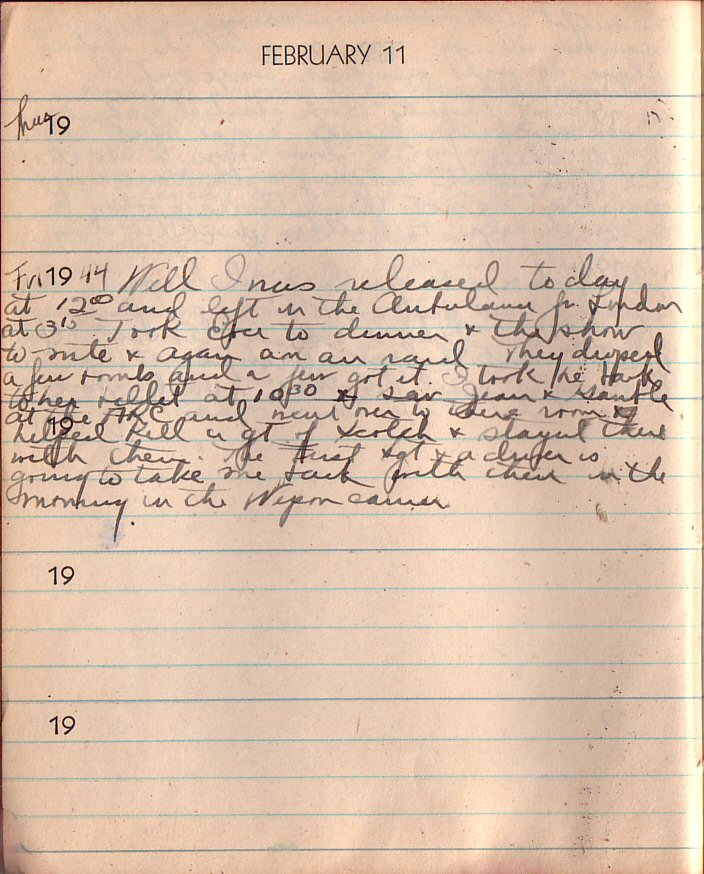 FEBRUARY 11
19
Fri 1944 Well I was released to day
at 12⁰⁰ and left in the Ambulance for London
at 3¹⁵. Took to dinner & the show
to nite & again an air raid They droped
a few bombs and a few got it. I took her back
to her billet at 10³⁰ & saw Jean &
at the ARC and went over to there room &
19
helped kill a qt. of scotch & stayed there
with them. The first sgt & a driver is
going to take me back with them in the
morning in the Wepon carrier
19
19